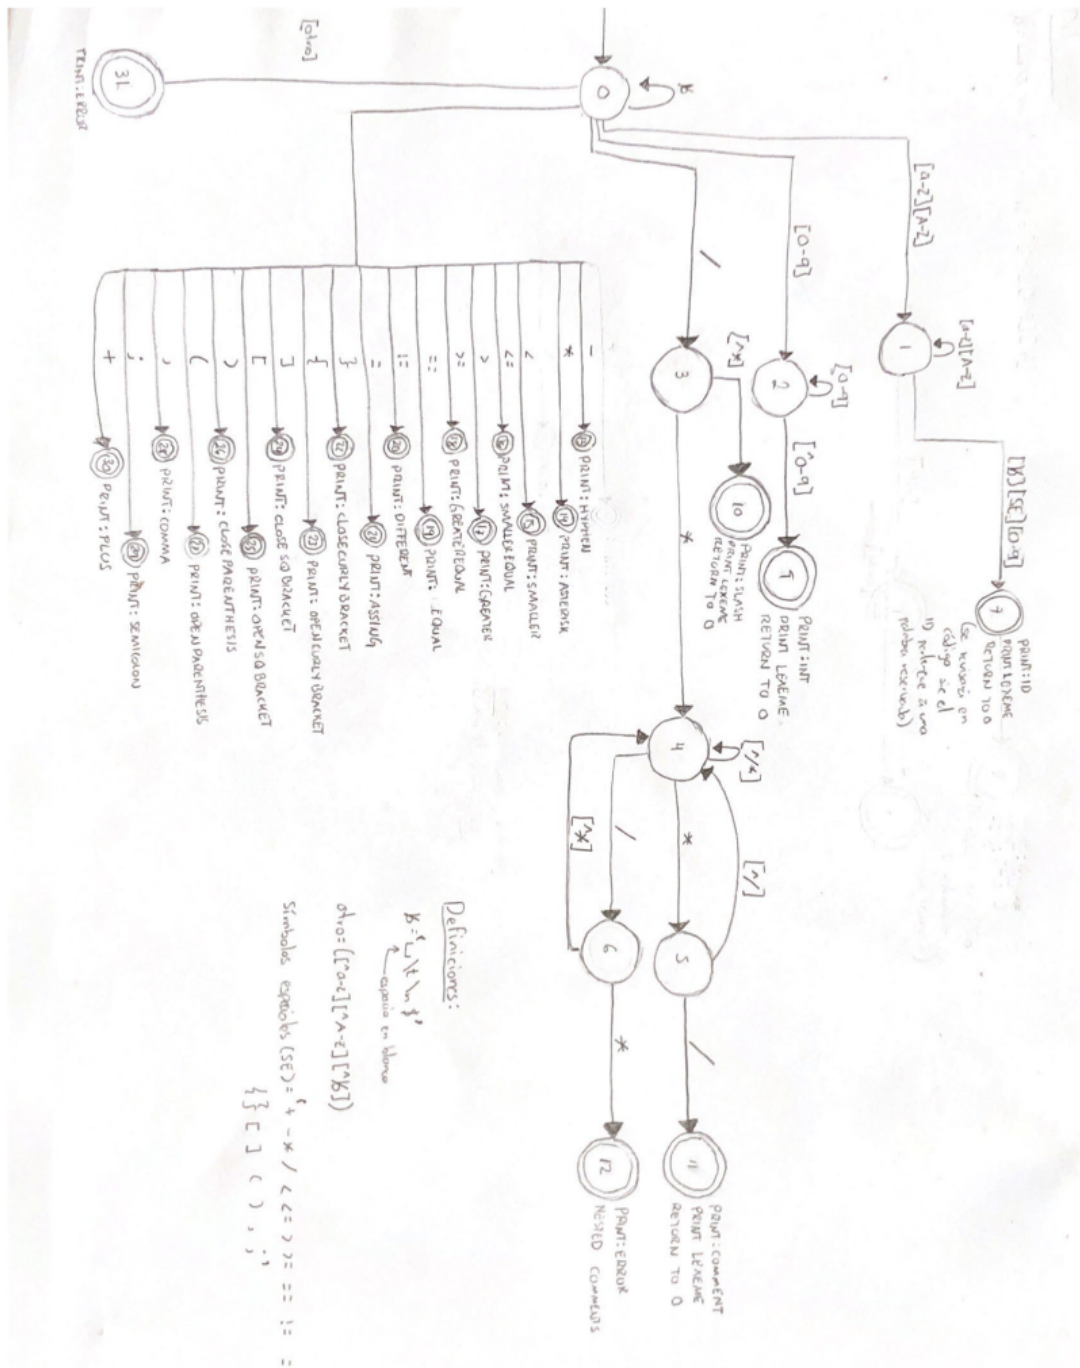 0
ƀ
[a-z][A-Z]
1
[a-z][A-Z]
[ƀ][SE][0-9]
7
PRINT:ID
PRINT LEXEME
RETURN TO 0
(se revisará en
código si el
ID pertenece a una
palabra reservada)
[0-9]
2
[0-9]
[^0-9]
PRINT:INT
PRINT LEXEME
RETURN TO 0
/
3
[^*]
10
PRINT:SLASH
PRINT LEXEME
RETURN TO 0
*
4
[^/*]
*
[^/]
5
/
11
PRINT:COMMENT
PRINT LEXEME
RETURN TO 0
/
[^*]
6
*
12
PRINT:ERROR
NESTED COMMENTS
- PRINT:HYPHEN
* 14 PRINT:ASTERISK
< 15 PRINT:SMALLER
<= PRINT:SMALLEREQUAL
> 17 PRINT:GREATER
>= 18 PRINT:GREATEREQUAL
== 19 PRINT: EQUAL
!= 20 PRINT:DIFFERENT
= PRINT:ASSING
} 22 PRINT:CLOSECURLYBRACKET
{ 23 PRINT:OPENCURLYBRACKET
] 24 PRINT:CLOSE SQ BRACKET
[ 25 PRINT:OPENSQBRACKET
) 26 PRINT:CLOSEPARENTHESIS
( PRINT:OPENPARENTHESIS
, 28 PRINT:COMMA
; 29 PRINT:SEMICOLON
+ 30 PRINT:PLUS
[otro]
31
PRINT:ERROR
Definiciones:
ƀ='␣\t\n$'
espacio en blanco
otro=([^a-z][^A-Z][^ƀ])
Símbolos especiales (SE)='+ - * / < <= > >= == != =
{ } [ ] ( ) , ;'